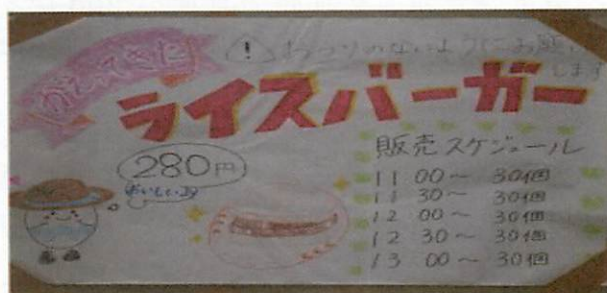 かえってきた
! おつりのないようにお願いします
ライスバーガー
280円
おいしいヨ
販売スケジュール
11 00～ 30個
11 30～ 30個
12 00～ 30個
12 30～ 30個
13 00～ 30個